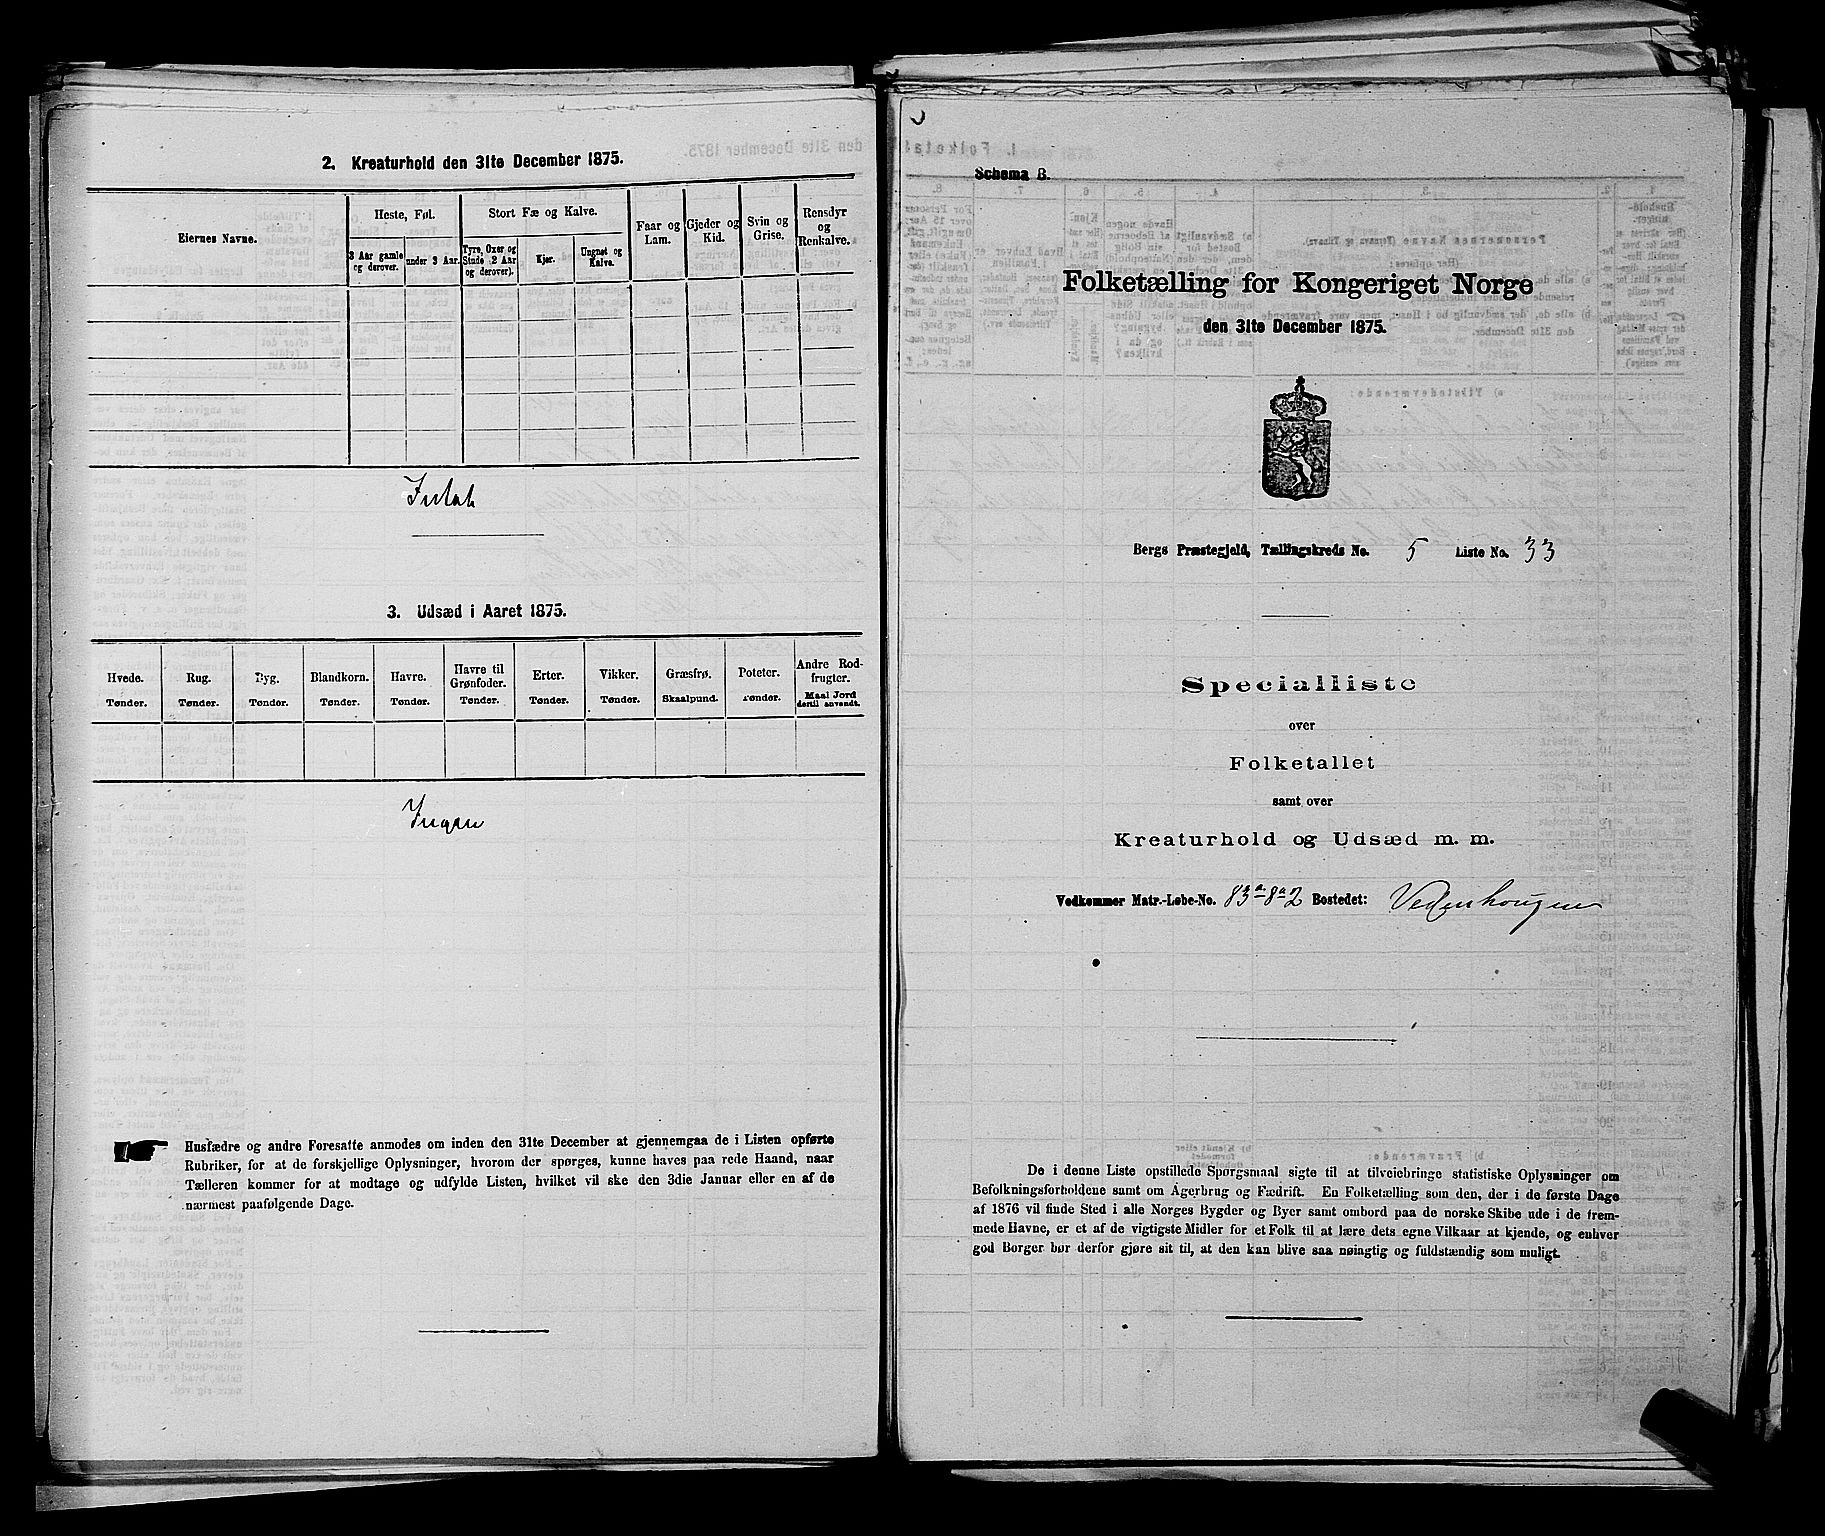 2. Kreaturhold den 31te December 1875.
Eiernes Navne.
Heste, Føl.
3 Aar gamle og derover.
under 3 Aar.
Stort Fæ og Kalve.
Tyre, Oxer og Stude (2 Aar og derover).
Kjør.
Ungnøt og Kalve.
Faar og Lam.
Gjeder og Kid.
Svin og Grise.
Rensdyr og Renkalve.
3. Udsæd i Aaret 1875.
Hvede. Tønder.
Rug. Tønder.
Byg. Tønder.
Blandkorn. Tønder.
Havre. Tønder.
Havre til Grønfoder. Tønder.
Erter. Tønder.
Vikker. Tønder.
Græsfrø. Skaalpund.
Poteter. Tønder.
Andre Rodfrugter. Maal Jord dertil anvendt.
Ingen
Husfædre og andre Foresatte anmodes om inden den 31te December at gjennemgaa de i Listen opførte
Rubriker, for at de forskjellige Oplysninger, hvorom der spørges, kunne haves paa rede Haand, naar
Tælleren kommer for at modtage og udfylde Listen, hvilket vil ske den 3die Januar eller en af de
nærmest paafølgende Dage.
Schema B.
Folketælling for Kongeriget Norge
den 31te December 1875.
Bergs Præstegjeld, Tællingskreds No. 5 Liste No. 33
Specialliste
over
Folketallet
samt over
Kreaturhold og Udsæd m. m.
Vedkommer Matr.-Løbe-No. 83a 8a2 Bostedet: Vedenhougen
De i denne Liste opstillede Spørgsmaal sigte til at tilveiebringe statistiske Oplysninger om
Befolkningsforholdene samt om Agerbrug og Fædrift. En Folketælling som den, der i de første Dage
af 1876 vil finde Sted i alle Norges Bygder og Byer samt ombord paa de norske Skibe ude i de frem-
mede Havne, er et af de vigtigste Midler for et Folk til at lære dets egne Vilkaar at kjende, og enhver
god Borger bør derfor gjøre sit til, at den kan blive saa nøiagtig og fuldstændig som muligt.